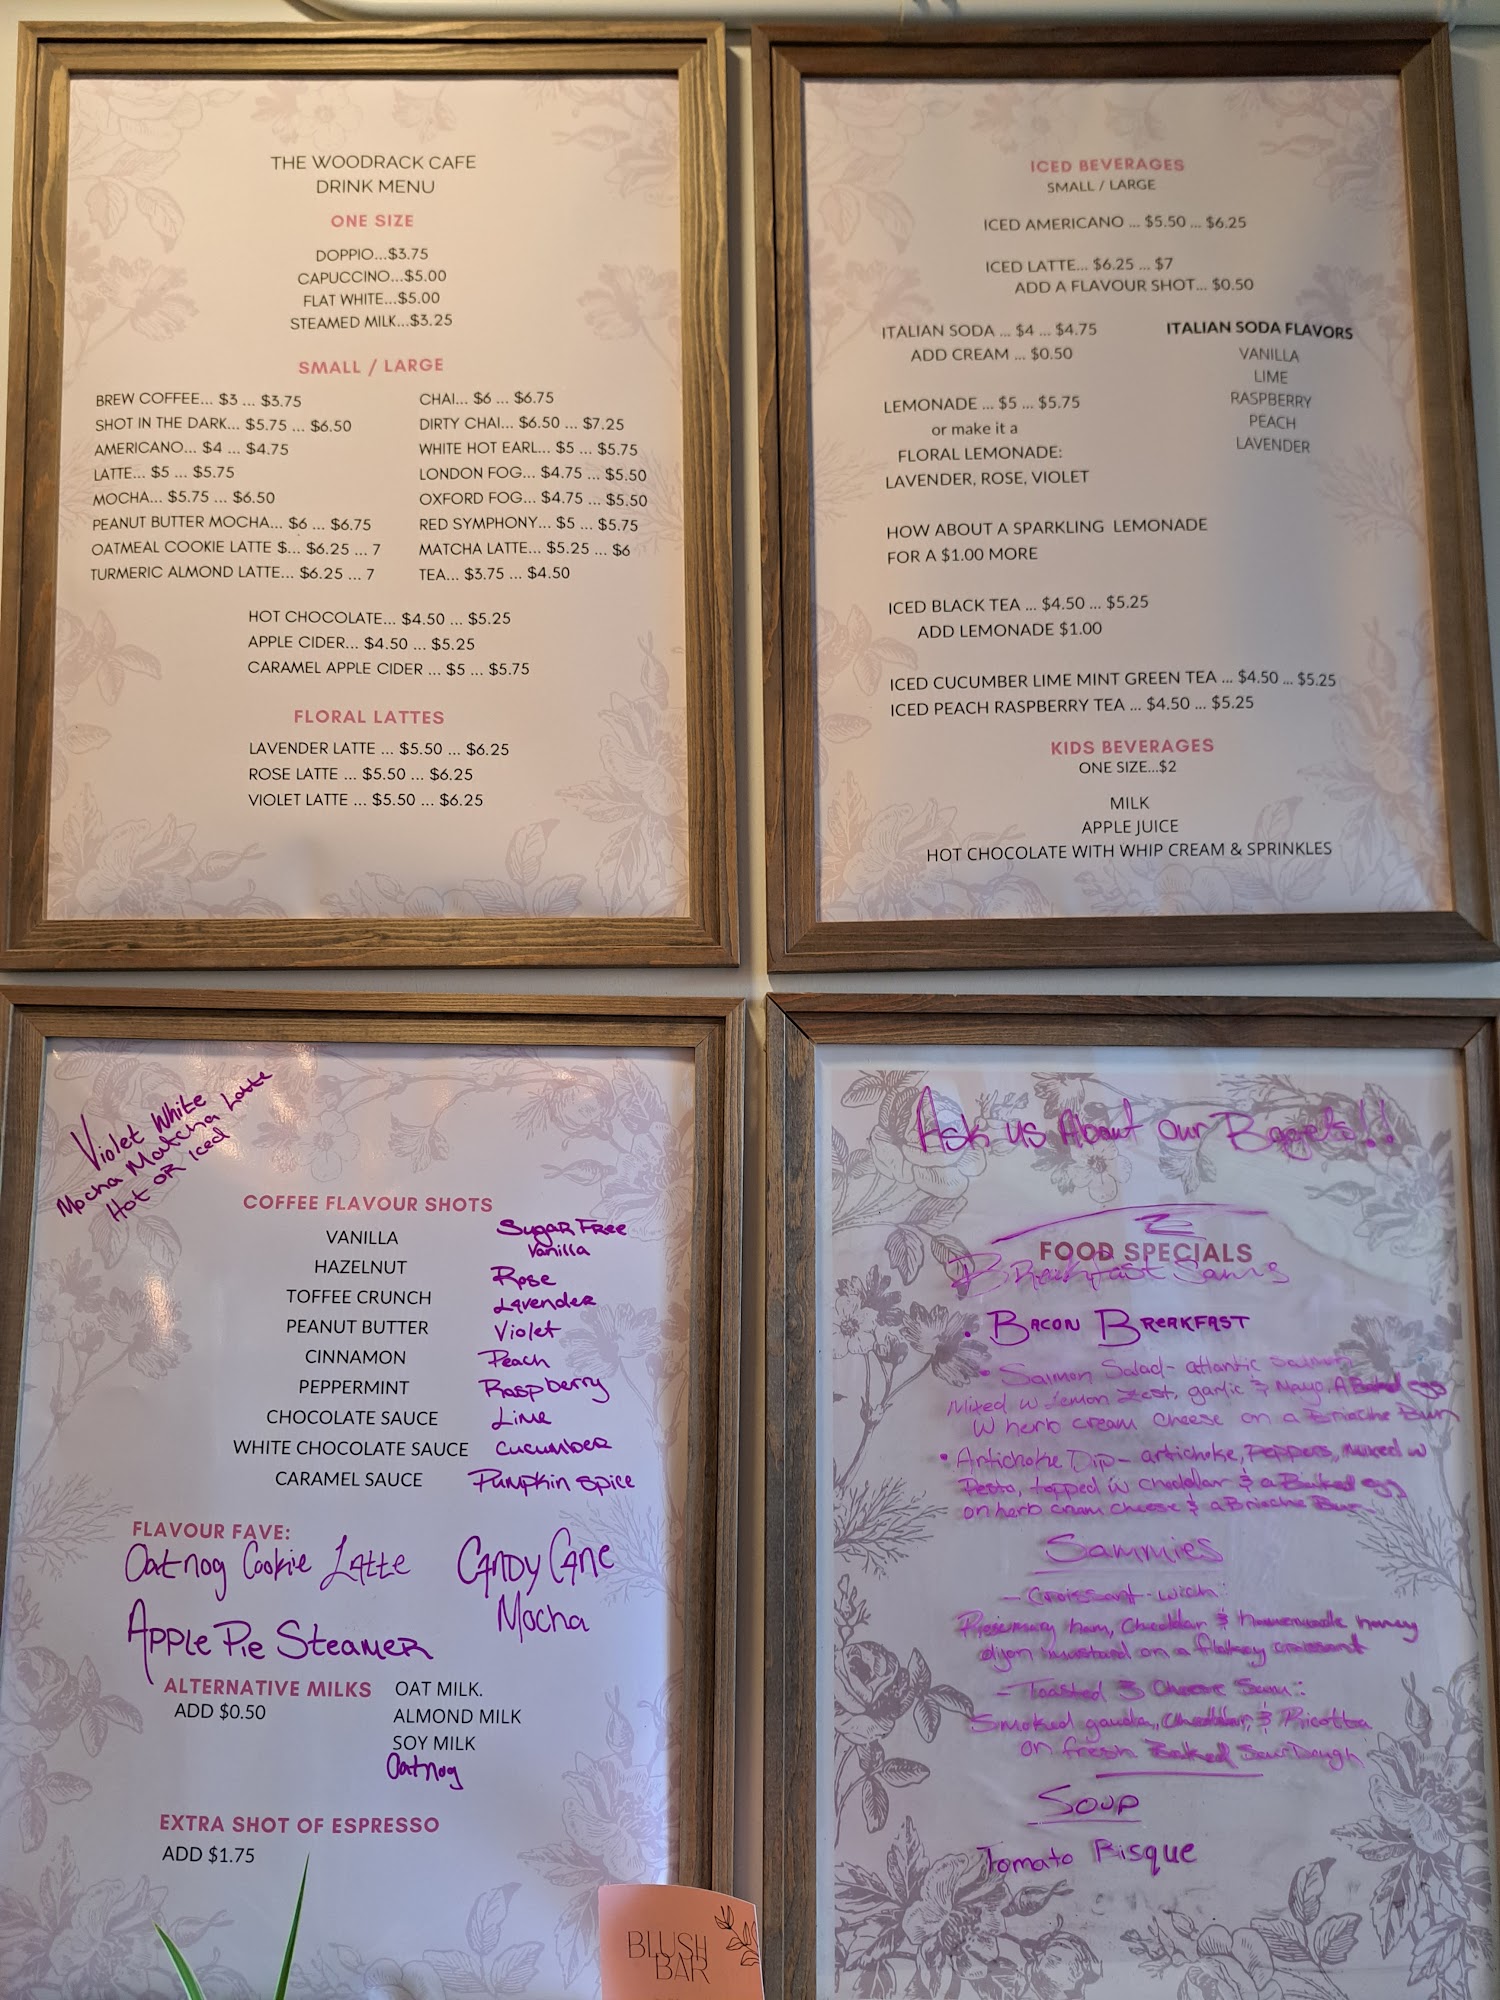 THE WOODRACK CAFE
DRINK MENU
ONE SIZE
DOPPIO...$3.75
CAPUCCINO...$5.00
FLAT WHITE...$5.00
STEAMED MILK...$3.25
SMALL / LARGE
BREW COFFEE... $3 ... $3.75
SHOT IN THE DARK... $5.75 ... $6.50
AMERICANO... $4 ... $4.75
LATTE... $5 ... $5.75
MOCHA... $5.75 ... $6.50
PEANUT BUTTER MOCHA... $6 ... $6.75
OATMEAL COOKIE LATTE $... $6.25 ... 7
TURMERIC ALMOND LATTE... $6.25 ... 7
CHAI... $6 ... $6.75
DIRTY CHAI... $6.50 ... $7.25
WHITE HOT EARL... $5 ... $5.75
LONDON FOG... $4.75 ... $5.50
OXFORD FOG... $4.75 ... $5.50
RED SYMPHONY... $5 ... $5.75
MATCHA LATTE... $5.25 ... $6
TEA... $3.75 ... $4.50
HOT CHOCOLATE... $4.50 ... $5.25
APPLE CIDER... $4.50 ... $5.25
CARAMEL APPLE CIDER ... $5 ... $5.75
FLORAL LATTES
LAVENDER LATTE ... $5.50 ... $6.25
ROSE LATTE ... $5.50 ... $6.25
VIOLET LATTE ... $5.50 ... $6.25
ICED BEVERAGES
SMALL / LARGE
ICED AMERICANO ... $5.50 ... $6.25
ICED LATTE... $6.25 ... $7
ADD A FLAVOUR SHOT... $0.50
ITALIAN SODA ... $4 ... $4.75
ADD CREAM ... $0.50
LEMONADE ... $5 ... $5.75
or make it a
FLORAL LEMONADE:
LAVENDER, ROSE, VIOLET
ITALIAN SODA FLAVORS
VANILLA
LIME
RASPBERRY
PEACH
LAVENDER
HOW ABOUT A SPARKLING LEMONADE
FOR A $1.00 MORE
ICED BLACK TEA ... $4.50 ... $5.25
ADD LEMONADE $1.00
ICED CUCUMBER LIME MINT GREEN TEA ... $4.50 ... $5.25
ICED PEACH RASPBERRY TEA ... $4.50 ... $5.25
KIDS BEVERAGES
ONE SIZE...$2
MILK
APPLE JUICE
HOT CHOCOLATE WITH WHIP CREAM & SPRINKLES
Violet White
Mocha Matcha Latte
Hot or Iced
COFFEE FLAVOUR SHOTS
VANILLA
HAZELNUT
TOFFEE CRUNCH
PEANUT BUTTER
CINNAMON
PEPPERMINT
CHOCOLATE SAUCE
WHITE CHOCOLATE SAUCE
CARAMEL SAUCE
Sugar Free
Vanilla
Rose
Lavender
Violet
Peach
Raspberry
Lime
Cucumber
Pumpkin Spice
FLAVOUR FAVE:
Oatnog Cookie Latte
Candy Cane
Mocha
Apple Pie Steamer
ALTERNATIVE MILKS
ADD $0.50
OAT MILK.
ALMOND MILK
SOY MILK
Oatnog
EXTRA SHOT OF ESPRESSO
ADD $1.75
BLUSH
BAR
Ask us About our Bagels!!
FOOD SPECIALS
Breakfast Sams
• Bacon Breakfast
• Salmon Salad - atlantic salmon
Mixed w Lemon Zest, garlic & Mayo. A Baked egg
w herb cream cheese on a Brioche Bun
• Artichoke Dip - artichoke, Peppers, Mixed w
Pesto, topped w cheddar & a Baked egg
on herb cream cheese & a Brioche Bun
Sammies
- Croissant-wich:
Rosemary ham, Cheddar & homemade honey
dijon mustard on a flakey croissant
- Toasted 3 Cheese Sam:
Smoked gouda, Cheddar, & Ricotta
on fresh Baked SourDough
Soup
Tomato Bisque